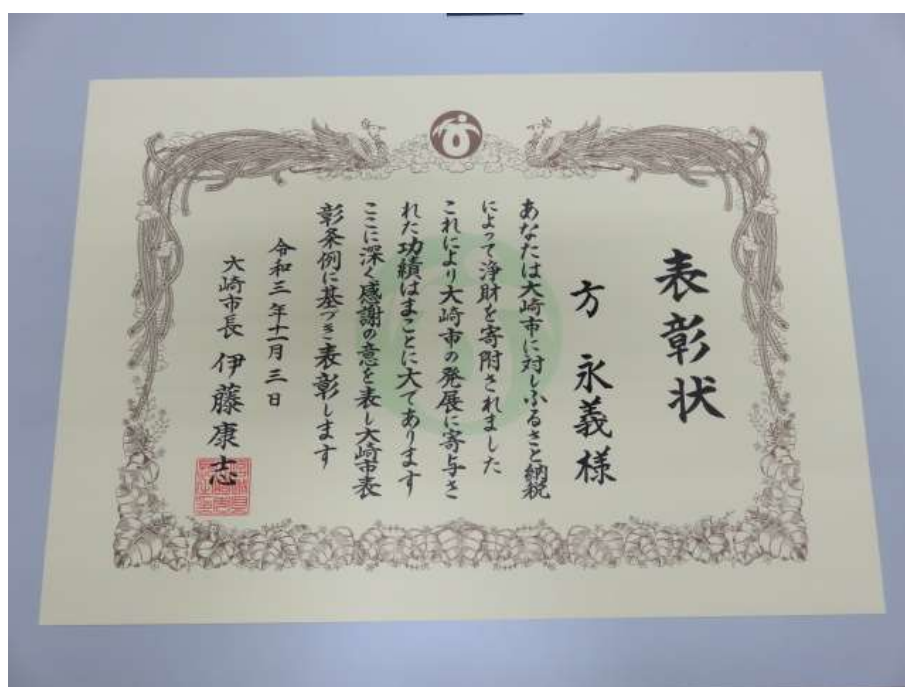 表彰状
方 永義様
あなたは大崎市に対しふるさと納税
によって浄財を寄附されました
これにより大崎市の発展に寄与さ
れた功績はまことに大てあります
ここに深く感謝の意を表し大崎市表
彰条例に基づき表彰します
令和三年十一月三日
大崎市長 伊藤康志